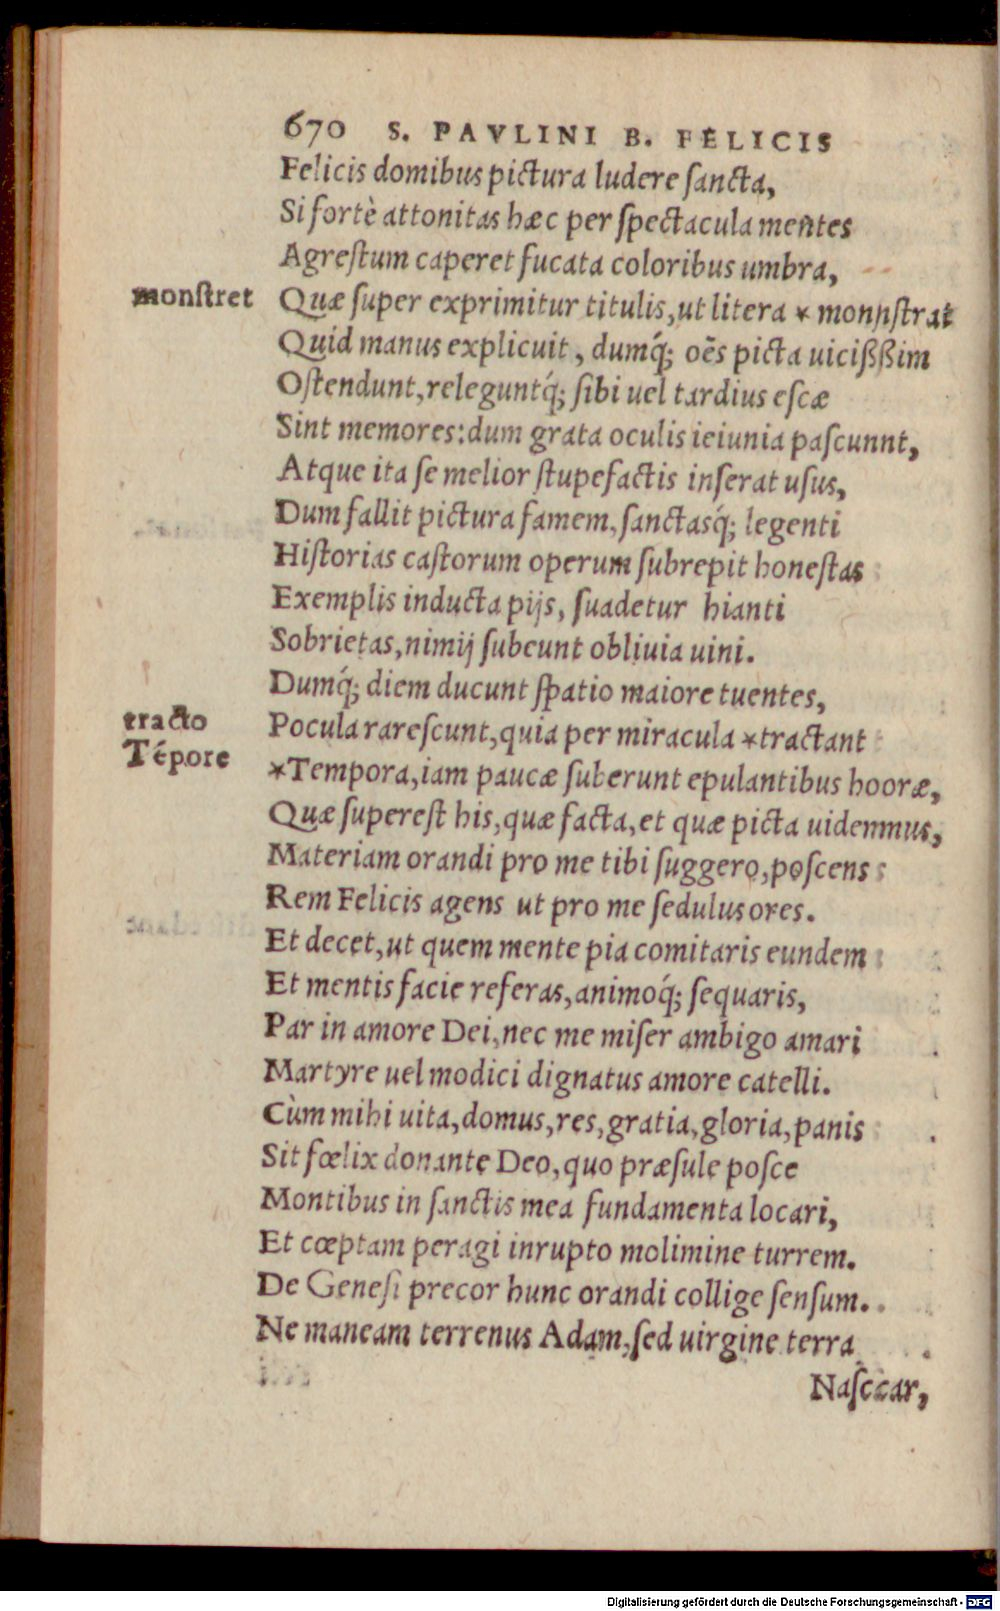 670 S. PAVLINI B. FELICIS
Felicis domibus pictura ludere ſancta,
Si fortè attonitas hæc per ſpectacula mentes
Agreſtum caperet fucata coloribus umbra,
monſtret
Quæ ſuper exprimitur titulis, ut litera * monnſtrat
Quid manus explicuit, dumq́; oēs picta uicißßim
Oſtendunt, releguntq́; ſibi uel tardius eſcæ
Sint memores: dum grata oculis ieiunia paſcunnt,
Atque ita ſe melior ſtupefactis inſerat uſus,
Dum fallit pictura famem, ſanctasq́; legenti
Hiſtorias caſtorum operum ſubrepit honeſtas
Exemplis inducta pijs, ſuadetur hianti
Sobrietas, nimij ſubeunt obliuia uini.
Dumq́; diem ducunt ſpatio maiore tuentes,
tracto
Pocula rareſcunt, quia per miracula *tractant
Tẽpore
*Tempora, iam paucæ ſuberunt epulantibus hooræ,
Quæ ſupereſt his, quæ facta, et quæ picta uidemmus,
Materiam orandi pro me tibi ſuggero, poſcens
Rem Felicis agens ut pro me ſedulus ores.
Et decet, ut quem mente pia comitaris eundem
Et mentis facie referas, animoq́; ſequaris,
Par in amore Dei, nec me miſer ambigo amari
Martyre uel modici dignatus amore catelli.
Cùm mihi uita, domus, res, gratia, gloria, panis
Sit fœlix donante Deo, quo præſule poſce
Montibus in ſanctis mea fundamenta locari,
Et cœptam peragi inrupto molimine turrem.
De Geneſi precor hunc orandi collige ſenſum.
Ne maneam terrenus Adam, ſed uirgine terra
Naſccar,
Digitalisierung gefördert durch die Deutsche Forschungsgemeinschaft - DFG